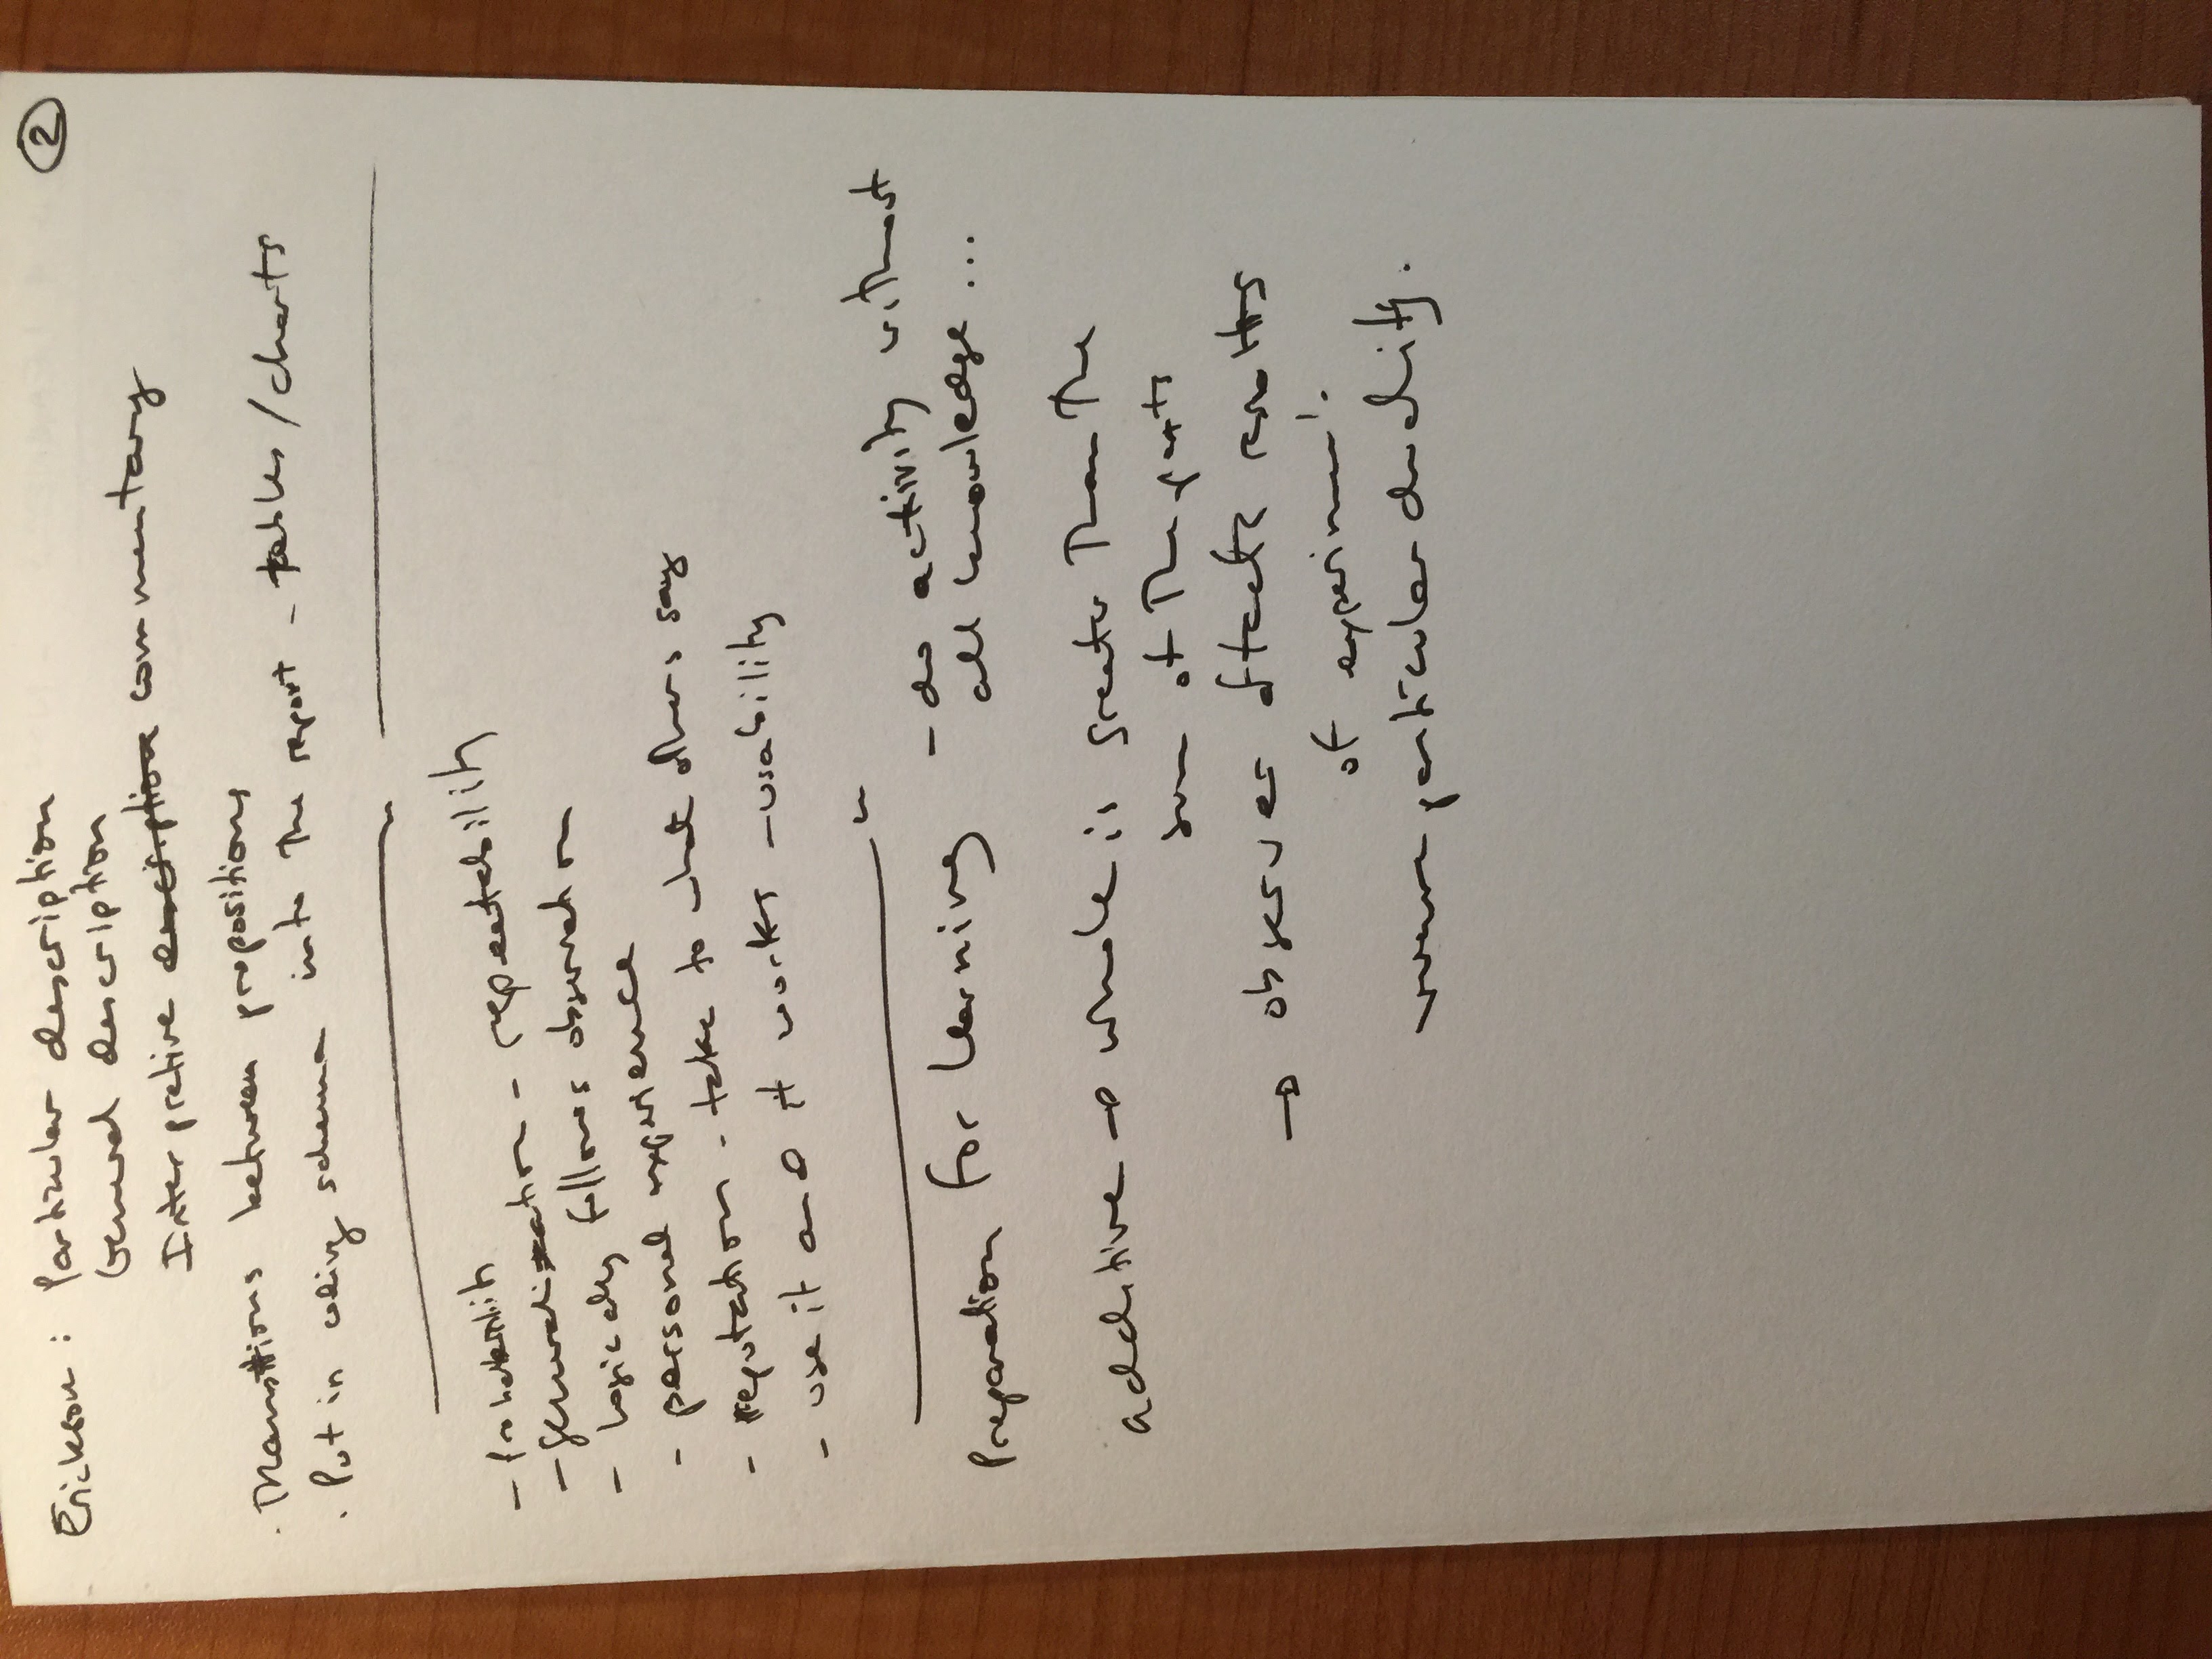 ②
Erickson: Particular description
General description
Interpretive description commentary
. Transitions between propositions
. Put in coding schema into the report - tables/charts
-
- generalization - repeatability
- logically follows observation
- personal experience
- reputation - take to what others say
- use it and it works - usability
Preparation for learning - do activity without
all knowledge...
additive → whole is greater than the
sum of the parts
→ observer affects results
of experiment.
wave particular duality.